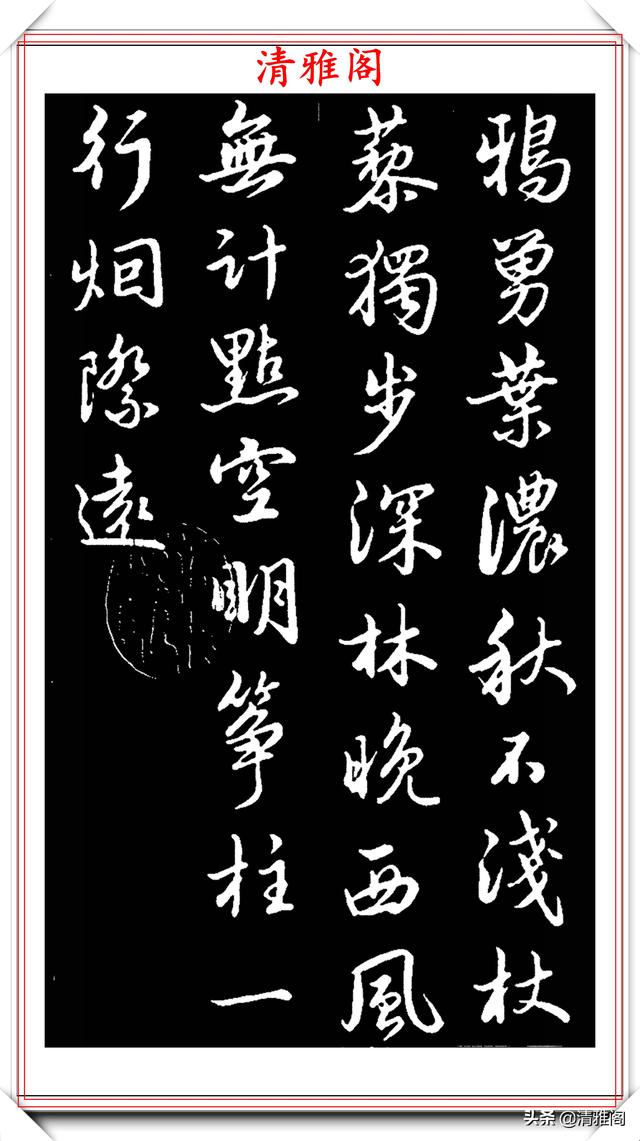 清雅阁
鴉勇葉濃秋不淺杖
藜獨步深林晚西風
無計點空明箏柱一
行烟際遠
头条 @清雅阁